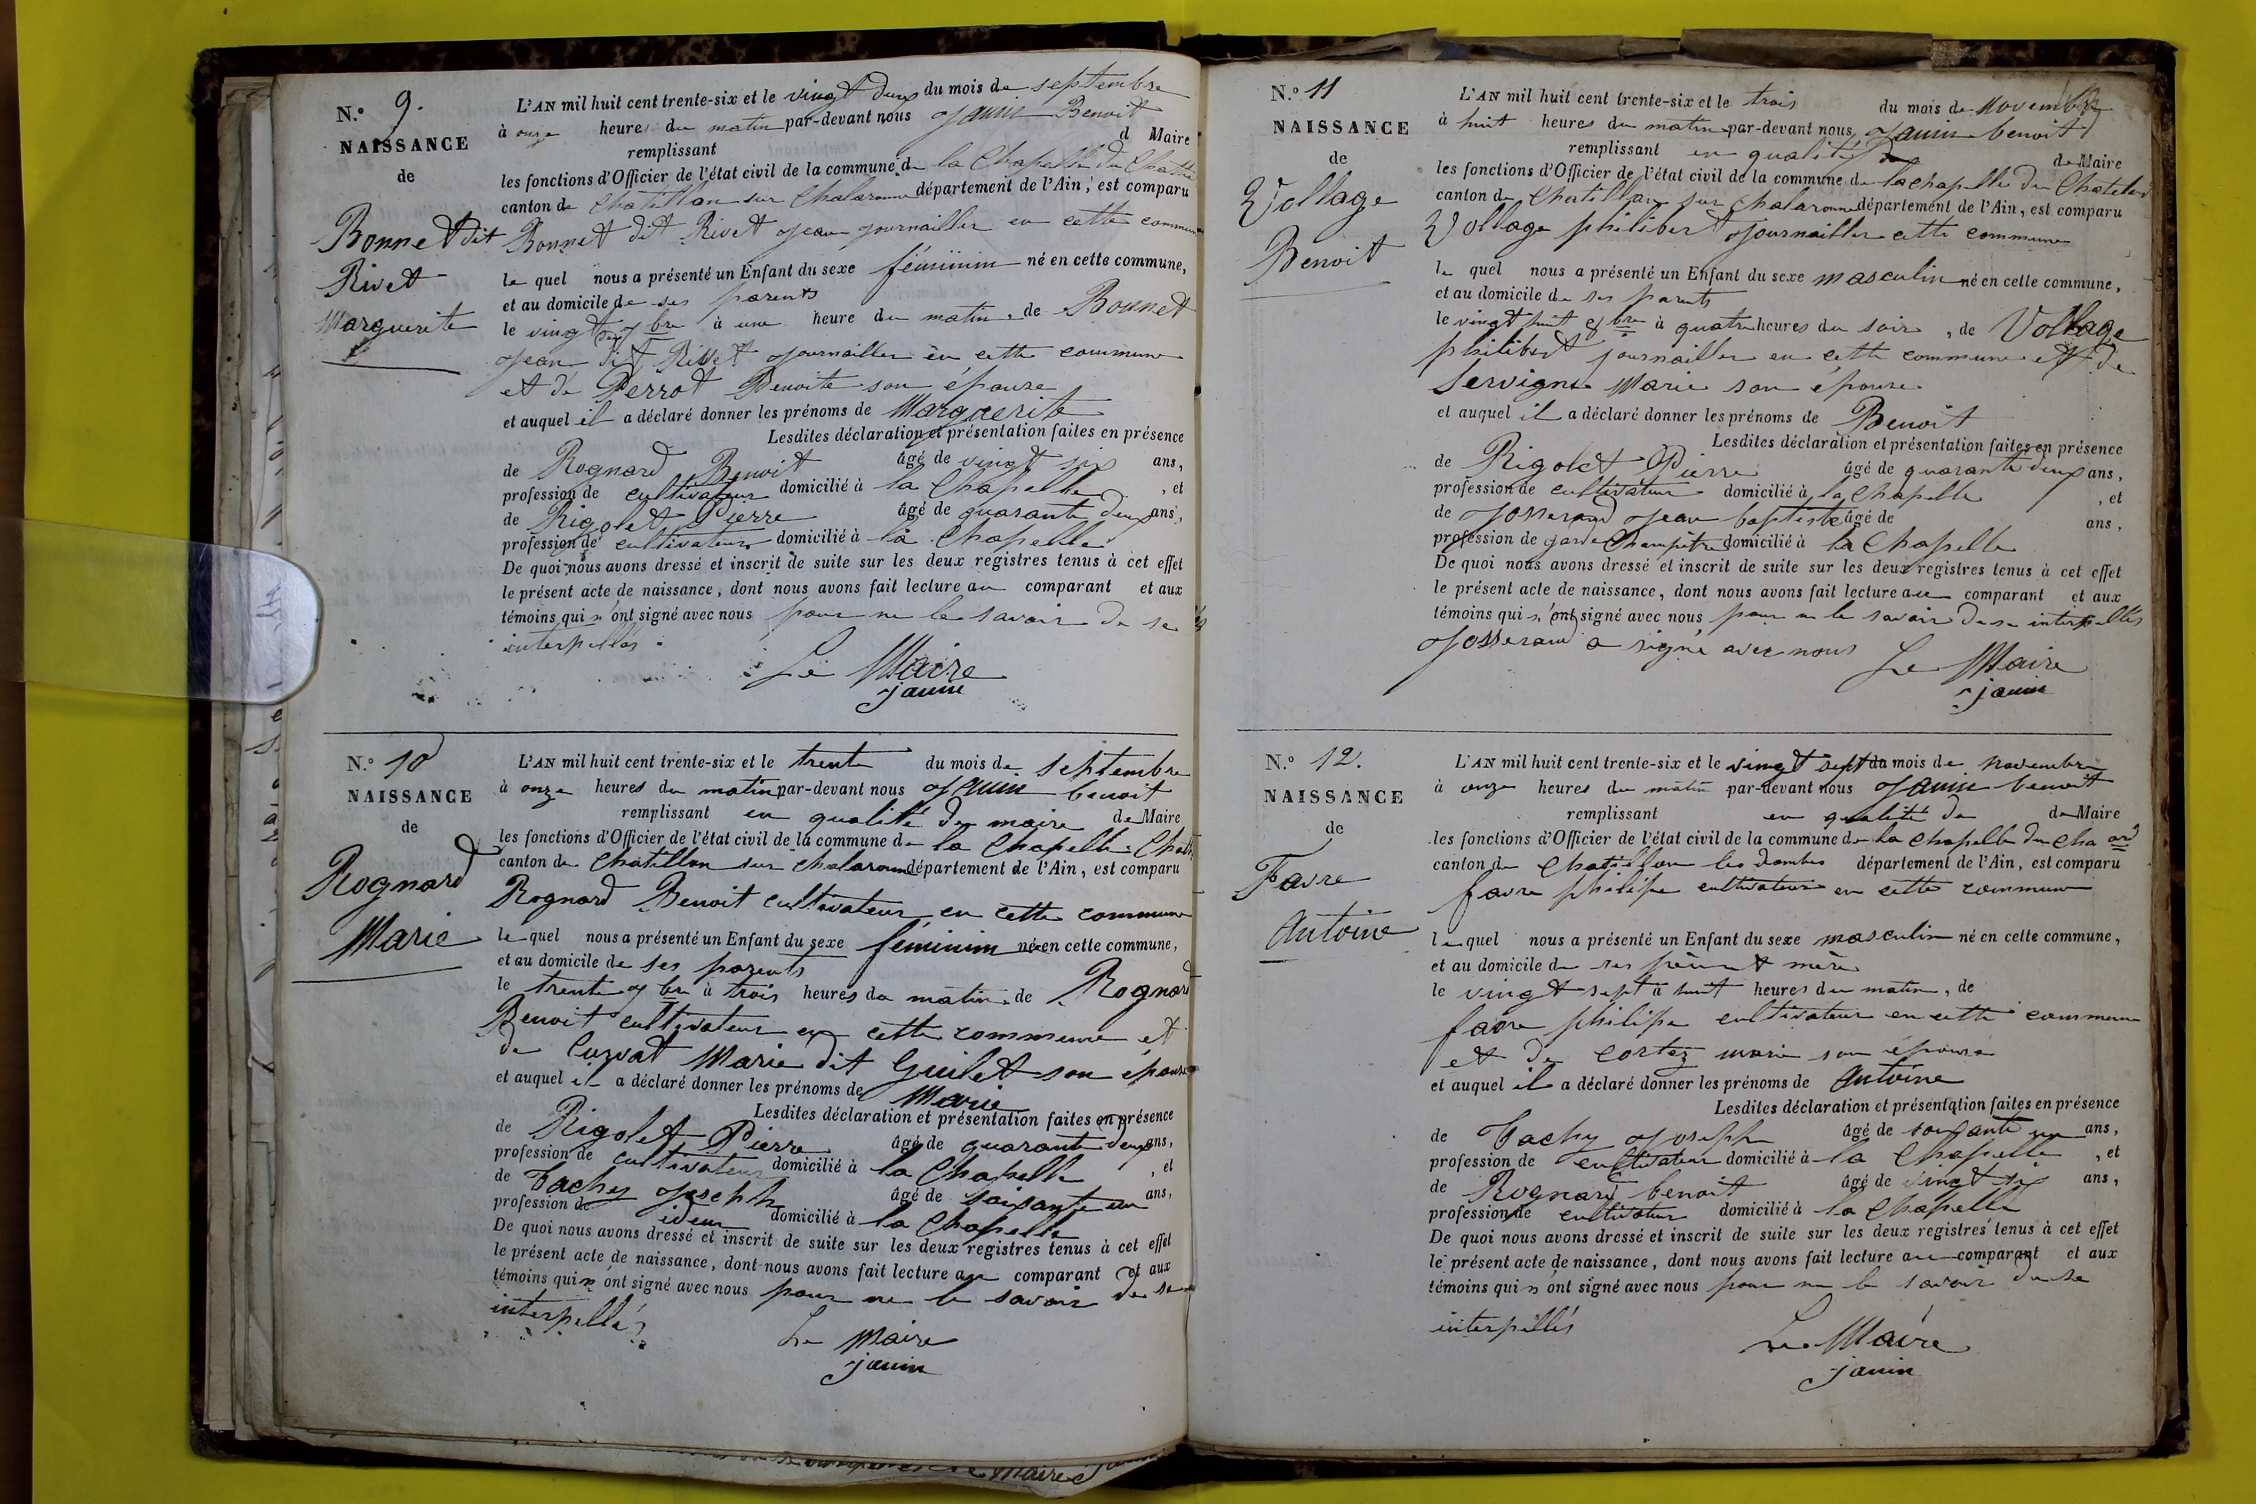 N.° 9.
NAISSANCE
de
Bonnet dit
Rivet
Marguerite
L'AN mil huit cent trente-six et le vingt deux du mois de septembre
à onze heures du matin par-devant nous Janin Benoit
d Maire
remplissant
les fonctions d'Officier de l'état civil de la commune de la Chapelle du
canton de Chatillon sur Chalaronne département de l'Ain, est comparu
Bonnet dit Rivet Jean journaillier en cette commune
le quel nous a présenté un Enfant du sexe féminim né en cette commune,
et au domicile de ses parents
le vingt 7bre à une heure du matin, de Bonnet
Jean dit Rivet journaillier en cette commune
et de Perrot Benoite son épouse
et auquel il a déclaré donner les prénoms de Marguerite
Lesdites déclaration et présentation faites en présence
de Rognard Benoit âgé de vingt six ans,
profession de cultivateur domicilié à la Chapelle , et
de Rigolet Pierre âgé de quarante deux ans,
profession de cultivateur domicilié à la Chapelle
De quoi nous avons dressé et inscrit de suite sur les deux registres tenus à cet effet
le présent acte de naissance, dont nous avons fait lecture au comparant et aux
témoins qui n'ont signé avec nous pour ne le savoir de ce
interpellés
Le Maire
janin
N.° 10
NAISSANCE
de
Rognard
Marie
L'AN mil huit cent trente-six et le trente du mois de septembre
à onze heures du matin par-devant nous Janin benoit
remplissant en qualité de maire de Maire
les fonctions d'Officier de l'état civil de la commune de la Chapelle
canton de Chatillon sur Chalaronne département de l'Ain, est comparu
Rognard Benoit cultivateur en cette commune
le quel nous a présenté un Enfant du sexe féminim né en cette commune,
et au domicile de ses parents
le trente 7bre à trois heures du matin, de Rognard
Benoit cultivateur en cette commune et
de Marie dit Guilet son épouse
et auquel il a déclaré donner les prénoms de Marie
Lesdites déclaration et présentation faites en présence
de Rigolet Pierre âgé de quarante deux ans,
profession de cultivateur domicilié à la Chapelle , et
de Tachy Joseph âgé de soixante un ans,
profession de idem domicilié à la Chapelle
De quoi nous avons dressé et inscrit de suite sur les deux registres tenus à cet effet
le présent acte de naissance, dont nous avons fait lecture au comparant et aux
témoins qui n'ont signé avec nous pour ne le savoir de ce
interpellés
Le Maire
janin
N.° 11
NAISSANCE
de
Vollage
Benoit
L'AN mil huit cent trente-six et le trois du mois de Novembre
à huit heures du matin par-devant nous Janin benoit
remplissant en qualité de Maire
les fonctions d'Officier de l'état civil de la commune de la chapelle du Chatelard
canton de Chatillon sur Chalaronne département de l'Ain, est comparu
Vollage philibert journaillier cette commune
le quel nous a présenté un Enfant du sexe masculin né en cette commune,
et au domicile de ses parents
le vingt huit 8bre à quatre heures du soir , de Vollage
philibert journaillier en cette commune et de
Servigne Marie son épouse
et auquel il a déclaré donner les prénoms de Benoit
Lesdites déclaration et présentation faites en présence
de Rigolet Pierre âgé de quarante deux ans,
profession de cultivateur domicilié à la Chapelle , et
de Josserand Jean baptiste âgé de ans,
profession de garde Champêtre domicilié à la Chapelle
De quoi nous avons dressé et inscrit de suite sur les deux registres tenus à cet effet
le présent acte de naissance, dont nous avons fait lecture au comparant et aux
témoins qui n'ont signé avec nous pour ne le savoir de ce interpellés
Josserand a signé avec nous
Le Maire
janin
N.° 12.
NAISSANCE
de
Favre
Antoine
L'AN mil huit cent trente-six et le vingt sept du mois de novembre
à onze heures du matin par-devant nous Janin benoit
remplissant en qualité de de Maire
les fonctions d'Officier de l'état civil de la commune de la Chapelle du Cha ard
canton de Chatillon les dombes département de l'Ain, est comparu
favre philipe cultivateur en cette commune
le quel nous a présenté un Enfant du sexe masculin né en cette commune,
et au domicile de ses père et mère
le vingt sept à huit heures du matin, de
favre philipe cultivateur en cette commune
et de Cortez marie son épouse
et auquel il a déclaré donner les prénoms de Antoine
Lesdites déclaration et présentation faites en présence
de Tachy Joseph âgé de soixante un ans,
profession de cultivateur domicilié à la Chapelle , et
de Rognard benoit âgé de vingt six ans,
profession de cultivateur domicilié à la Chapelle
De quoi nous avons dressé et inscrit de suite sur les deux registres tenus à cet effet
le présent acte de naissance, dont nous avons fait lecture au comparant et aux
témoins qui n'ont signé avec nous pour ne le savoir de ce
interpellés
Le Maire
janin